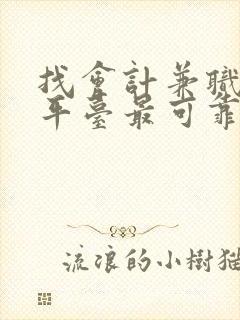 找會計兼職
平臺最可靠
流浪的小樹獺